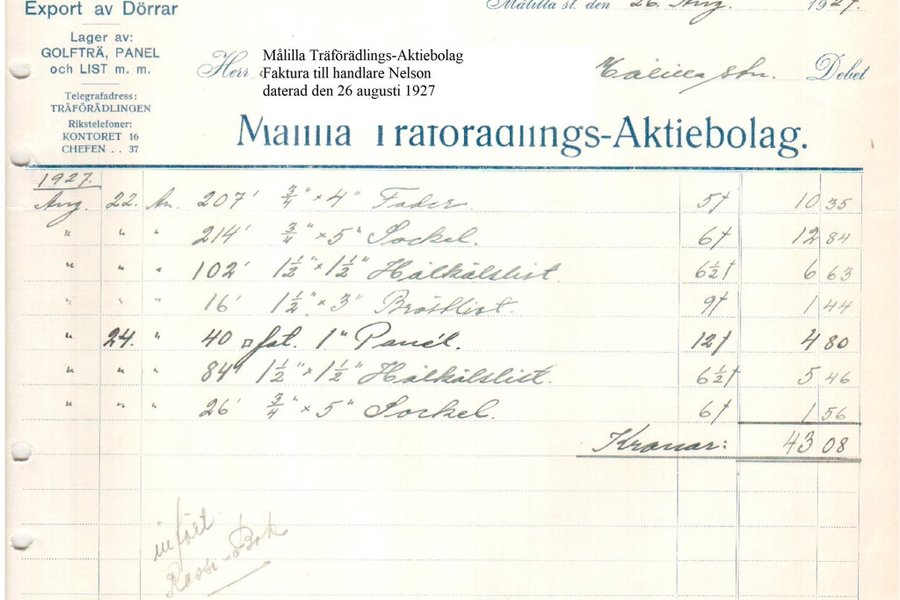 Export av Dörrar
Målilla st. den 26 Aug. 1927.
Lager av:
GOLFTRÄ, PANEL
och LIST m. m.
Herr
Målilla Träförädlings-Aktiebolag
Faktura till handlare Nelson
daterad den 26 augusti 1927
Målilla stn. Debet
Telegrafadress:
TRÄFÖRÄDLINGEN
Rikstelefoner:
KONTORET 16
CHEFEN . . 37
Målilla Träförädlings-Aktiebolag.
1927.
Aug. 22. An. 207' 3/4" × 4" Foder. 5† 10 35
" " " 214' 3/4" × 5" Sockel. 6† 12 84
" " " 102' 1 1/2" × 1 1/2" Hålkälslist 6 1/2† 6 63
" " " 16' 1 1/2" × 3" Bröstlist. 9† 1 44
" 24. " 40 □fot. 1" Panél. 12† 4 80
" " " 84' 1 1/2" × 1 1/2" Hålkälslist. 6 1/2† 5 46
" " " 26' 3/4" × 5" Sockel. 6† 1 56
Kronor: 43 08
infört